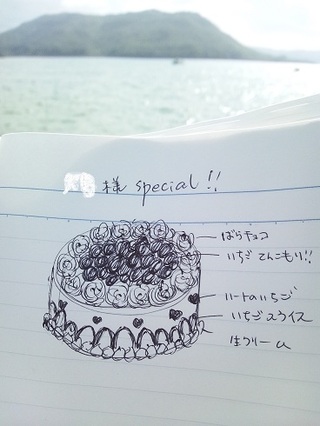 様 special!!
ばらチョコ
いちごてんこもり!!
ハートのいちご
いちごスライス
生クリーム